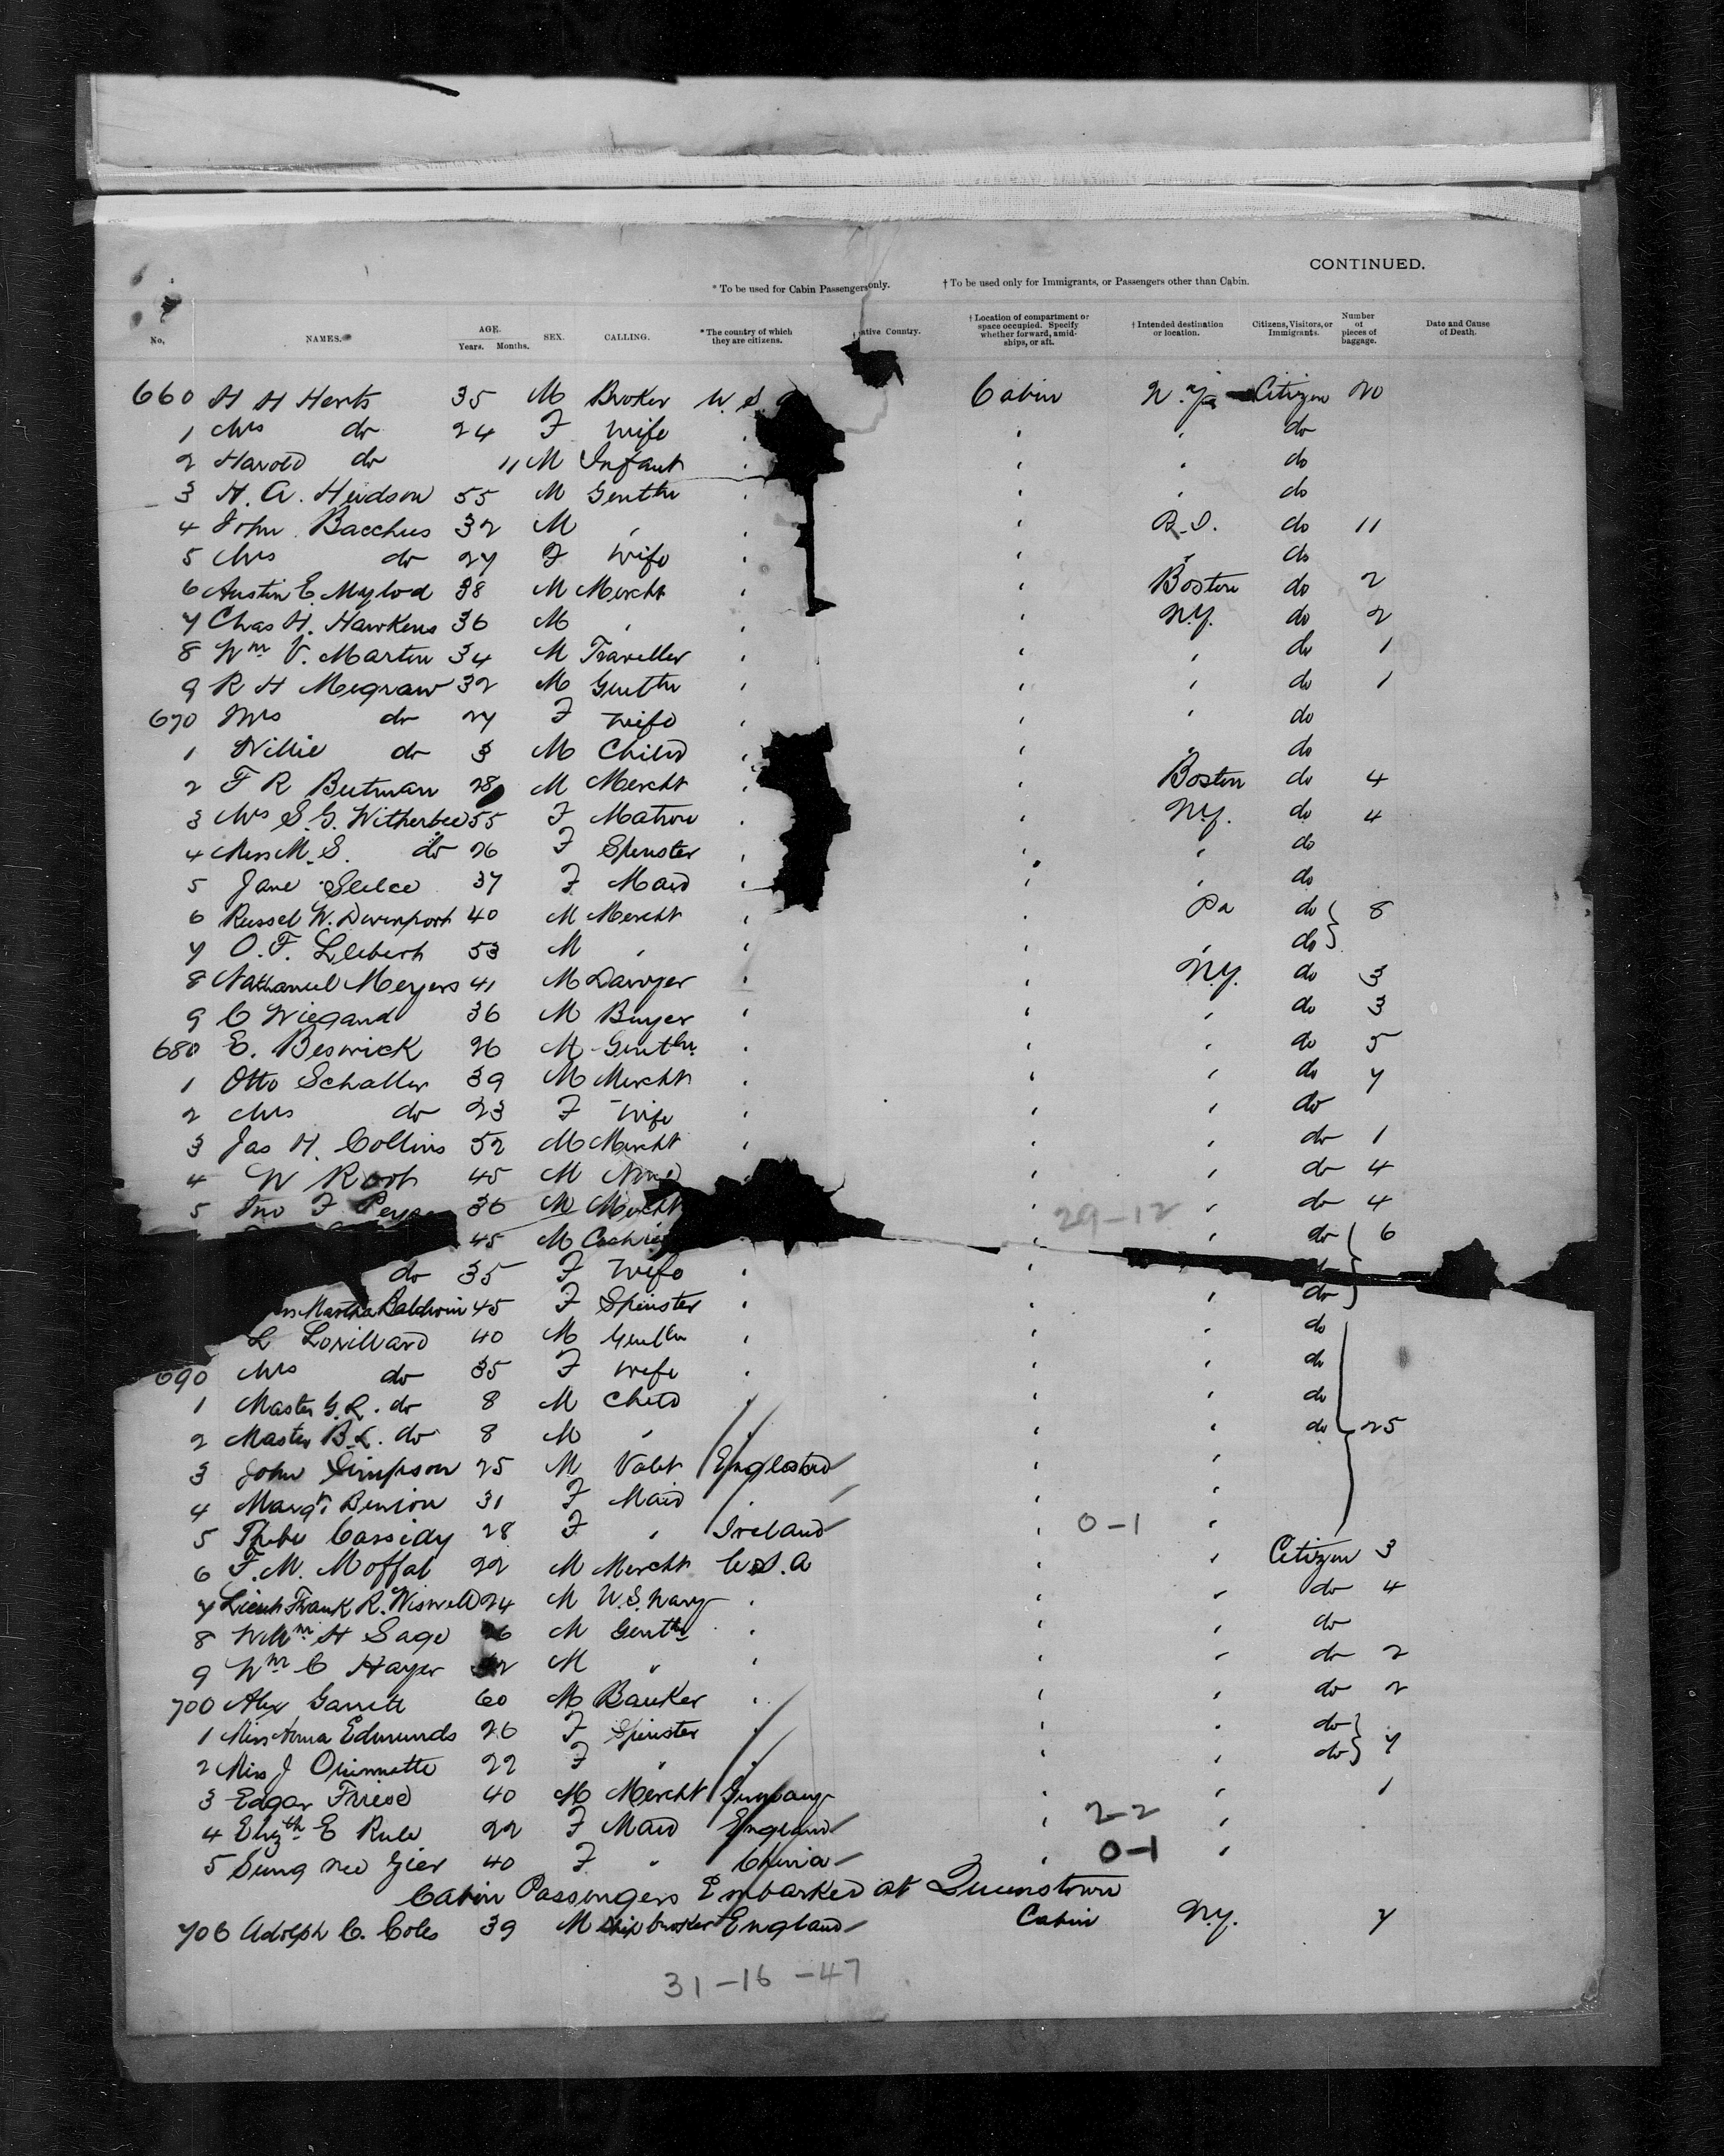 CONTINUED.
* To be used for Cabin Passengers only. † To be used only for Immigrants, or Passengers other than Cabin.
No. NAMES. AGE. Years. Months. SEX. CALLING. * The country of which they are citizens. ative Country. † Location of compartment or space occupied. Specify whether forward, amidships, or aft. † Intended destination or location. Citizens, Visitors, or Immigrants. Number of pieces of baggage. Date and Cause of Death.
660 H H Herts 35 M Broker U.S. Cabin N.Y. Citizen 20
1 Mrs do 24 F Wife ' ' ' do
2 Harold do 11 M Infant ' ' ' do
3 H. A. Hudson 55 M Gentln ' ' ' do
4 John Bacchus 32 M ' ' ' R.I. do 11
5 Mrs do 27 F Wife ' ' ' do
6 Austin E. Mylod 38 M Mercht ' ' Boston do 2
7 Chas H. Hawkens 36 M ' ' ' N.Y. do 2
8 Wm V. Martin 34 M Traveller ' ' ' do 1
9 R H Megraw 32 M Gentln ' ' ' do 1
670 Mrs do 27 F Wife ' ' ' do
1 Willie do 3 M Child ' ' ' do
2 F R Butman 28 M Mercht ' ' Boston do 4
3 Mrs S. G. Witherbee 55 F Matron ' ' N.Y. do 4
4 Miss M. S. do 26 F Spinster ' ' ' do
5 Jane 37 F Maid ' ' ' do
6 Russel W. Davenport 40 M Mercht ' ' Pa do 8
7 O. F. 53 M ' ' ' ' do
8 Nathaniel Meyers 41 M Lawyer ' ' N.Y. do 3
9 C Wiegand 36 M Buyer ' ' ' do 3
680 E. Beswick 26 M Gentln ' ' ' do 5
1 Otto Schaller 39 M Mercht ' ' ' do 7
2 Mrs do 23 F Wife ' ' ' do
3 Jas H. Collins 52 M Mercht ' ' ' do 1
4 W Root 45 M ' ' do 4
5 Jno F 36 M Mercht ' 29-12 ' do 4
45 M ' ' do 6
do 35 F Wife ' ' do
Martha Baldwin 45 F Spinster ' ' ' do
L Lorillard 40 M Gentln ' ' ' do
690 Mrs do 35 F Wife ' ' ' do
1 Master G. R. do 8 M Child ' ' do
2 Master B. L. do 8 M ' ' ' do 25
3 John Simpson 25 M Valet England ' '
4 Margt Benion 31 F Maid ' ' '
5 Phebe Cassidy 28 F ' Ireland ' 0-1 '
6 F. M. Moffat 22 M Mercht U.S.A ' ' Citizen 3
7 Lieut Frank R. Wiswell 24 M U.S. Navy ' ' ' do 4
8 Wm H Sage 26 M Gentln ' ' ' do
9 Wm C Hayes M " ' ' ' do 2
700 Alex Garrett 60 M Banker ' ' ' do 2
1 Miss Edmunds 26 F Spinster ' ' do
2 Miss J 22 F " ' ' do 7
3 Edgar Friese 40 M Mercht Germany ' ' 1
4 Elizth E Rule 22 F Maid England ' 2-2 '
5 Sung 40 F " China ' 0-1 '
Cabin Passengers Embarked at Queenstown
706 Adolph C. Coles 39 M Ship broker England Cabin N.Y. 7
31-16-47